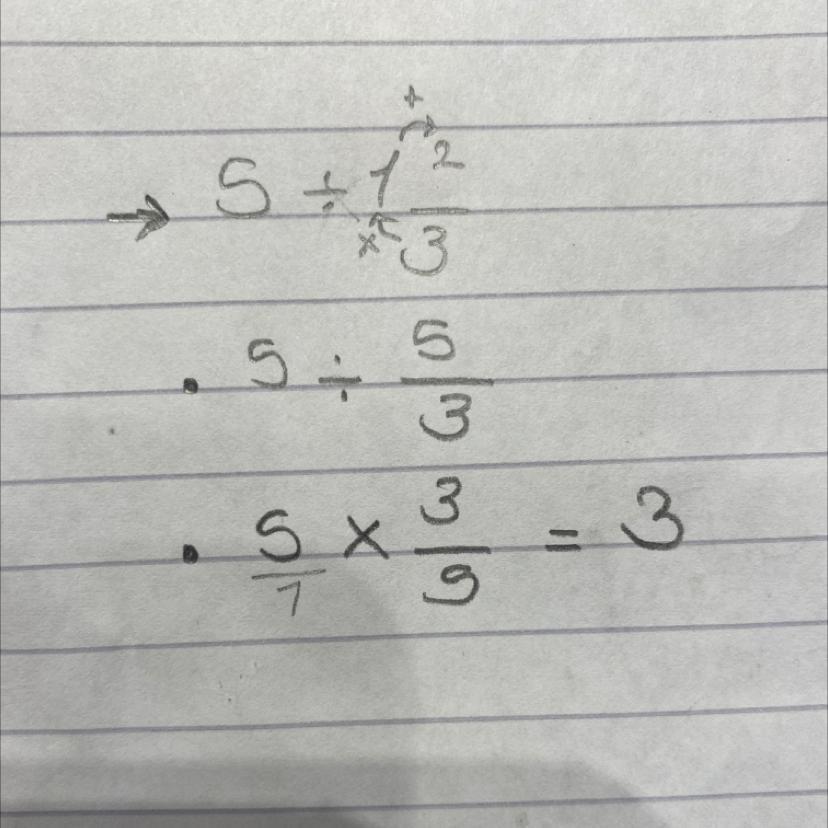 → 5 ÷ 1 2/3
. 5 ÷ 5/3
. 5/1 × 3/5 = 3